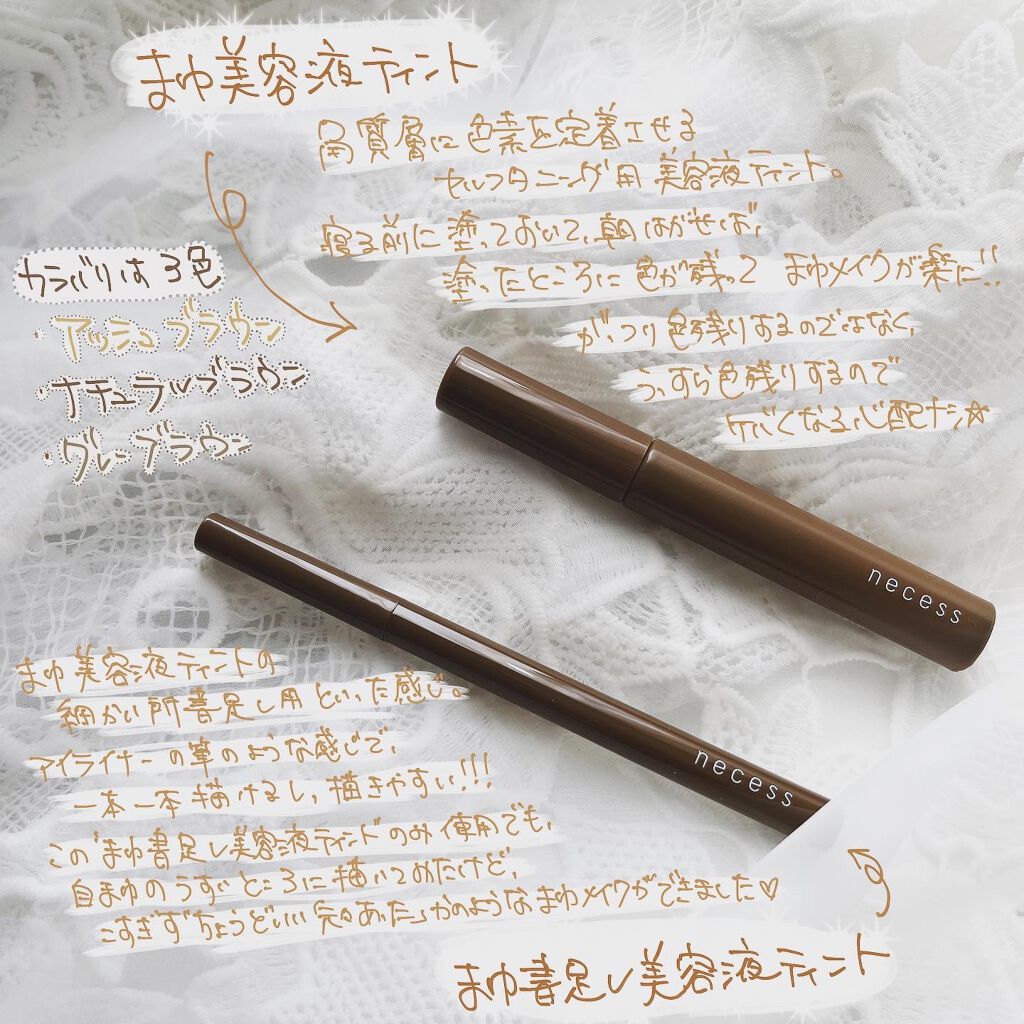 まゆ美容液ティント
角質層に色素を定着させる
セルフタニング用美容液ティント。
寝る前に塗っておいて、朝はがせば、
塗ったところに色が残って まゆメイクが楽に!!
がっつり色残りするのではなく、
うっすら色残りするので
ケバくなる心配ナシ☆
カラバリは3色
・アッシュブラウン
・ナチュラルブラウン
・グレーブラウン
necess
necess
まゆ美容液ティントの
細かい所書足し用といった感じ。
アイライナーの筆のような感じで、
一本一本描けるし、描きやすい!!!
この"まゆ書足し美容液ティント"のみ使用でも、
自まゆのうすいところに描いてみたけど、
こすぎずちょうどいい元々あったかのようなまゆメイクができました♡
まゆ書足し美容液ティント